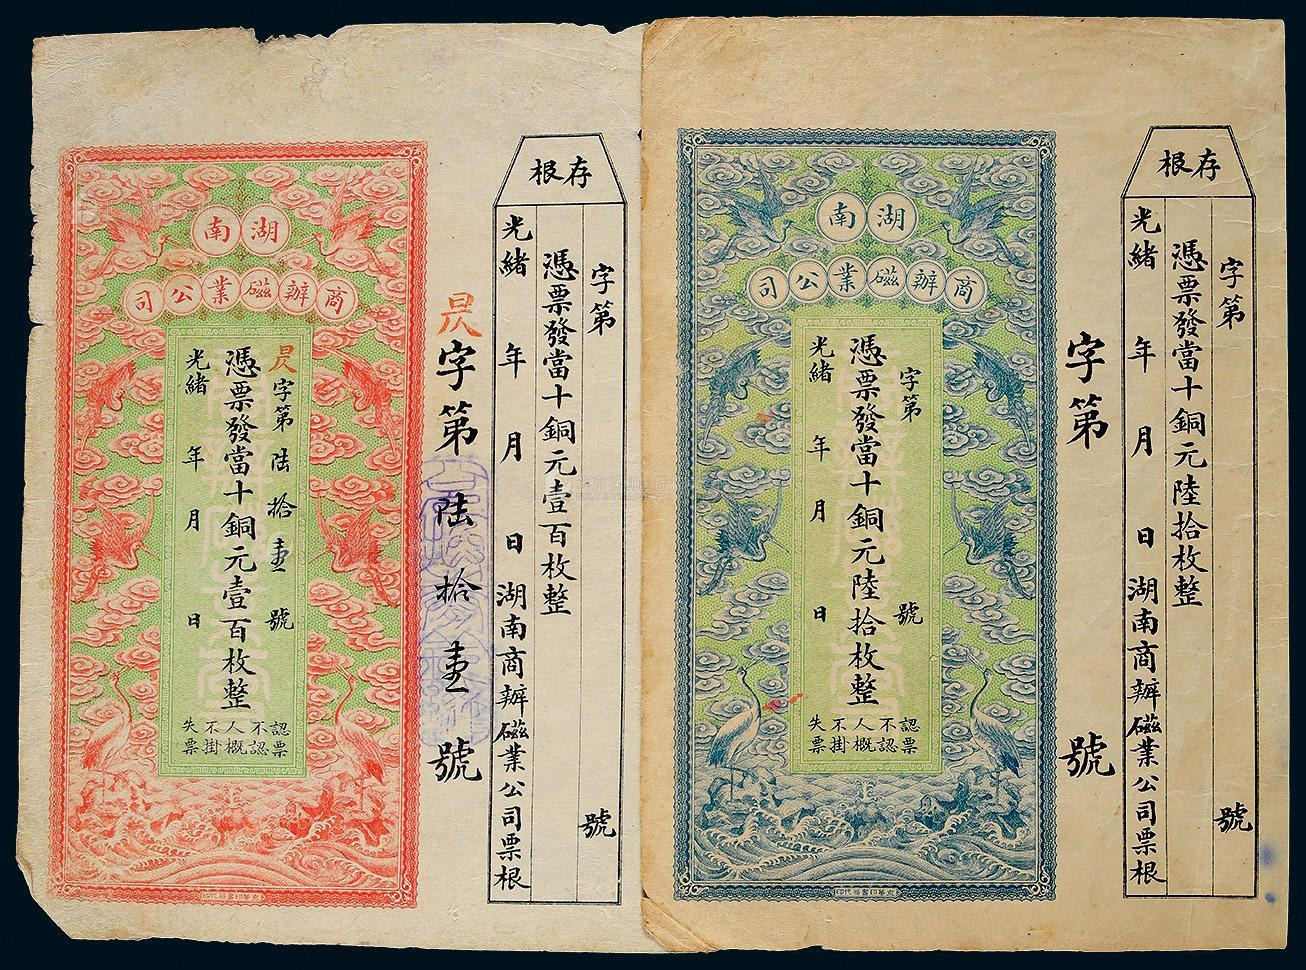 湖南
商辦磁業公司
字第陸拾壹號
憑票發當十銅元壹百枚整
光緒 年 月 日
認票不認人概不掛失票
字第陸拾壹號
存根
字第 號
憑票發當十銅元壹百枚整
光緒 年 月 日湖南商辦磁業公司票根
湖南
商辦磁業公司
字第 號
憑票發當十銅元陸拾枚整
光緒 年 月 日
認票不認人概不掛失票
字第 號
存根
字第 號
憑票發當十銅元陸拾枚整
光緒 年 月 日湖南商辦磁業公司票根